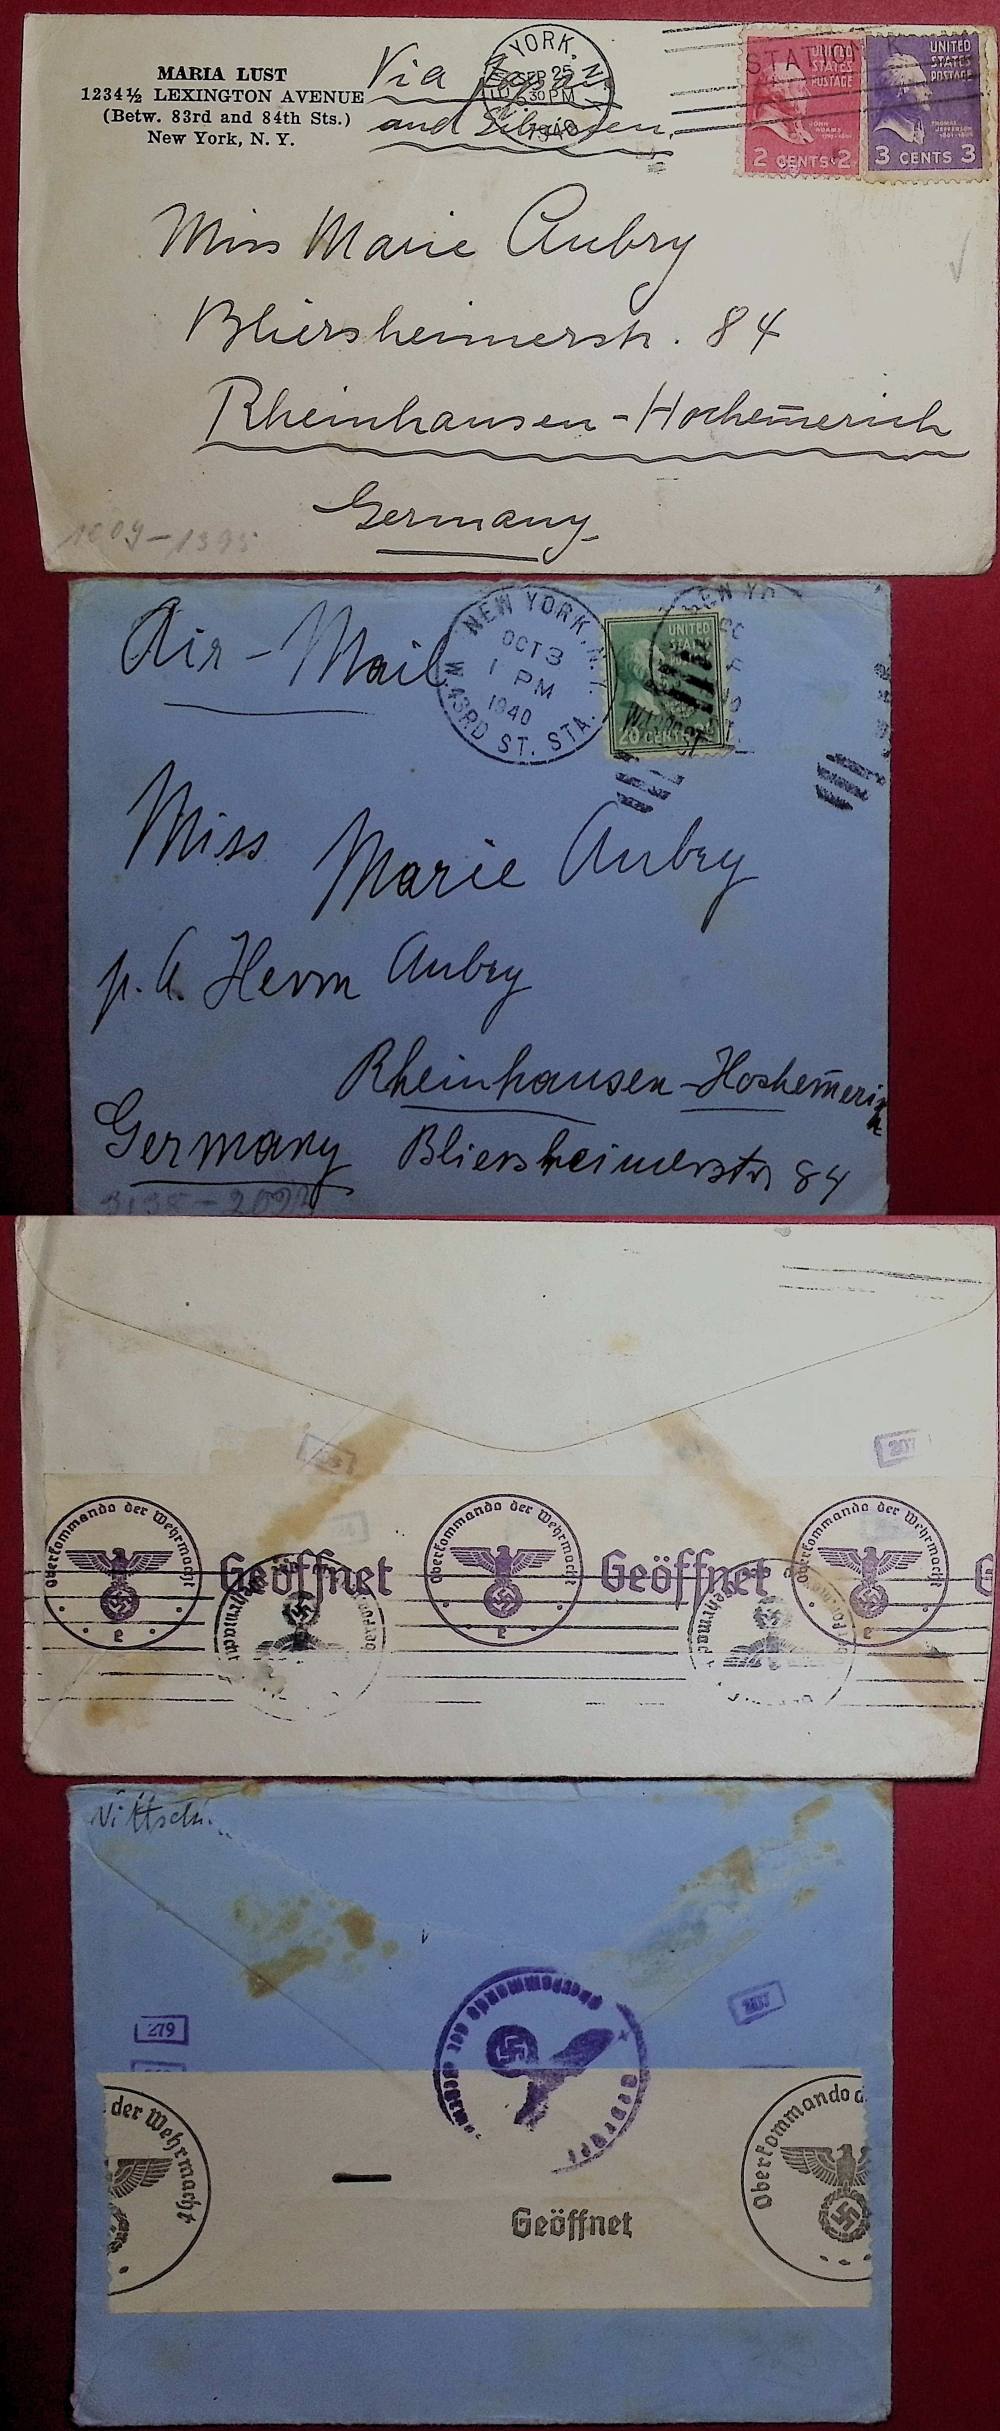 MARIA LUST
1234½ LEXINGTON AVENUE
(Betw. 83rd and 84th Sts.)
New York, N. Y.
Via Japan
and Siberien.
YORK, N.
SEP 25
530 PM
1940
STATION
UNITED STATES POSTAGE
JOHN ADAMS
2 CENTS 2
UNITED STATES POSTAGE
THOMAS JEFFERSON
3 CENTS 3
Miss Marie Aubry
Bliersheimerstr. 84
Rheinhausen-Hochem̅erich
Germany
1009-1395
Air-Mail
NEW YORK, N.Y.
OCT 3
1 PM
1940
W. 43RD ST. STA.
UNITED
20 CENTS
NEW YO
Miss Marie Aubry
p. A. Herrn Aubry
Rheinhausen-Hochem̅erich
Germany Bliersheimerstr 84
3138-2093
207
Oberkommando der Wehrmacht
e
Geöffnet
Oberkommando der Wehrmacht
e
Geöffnet
Oberkommando der Wehrmacht
e
G
Wehrmacht
279
207
Oberkommando der Wehrmacht
Geprüft
der Wehrmacht
Geöffnet
Oberkommando d